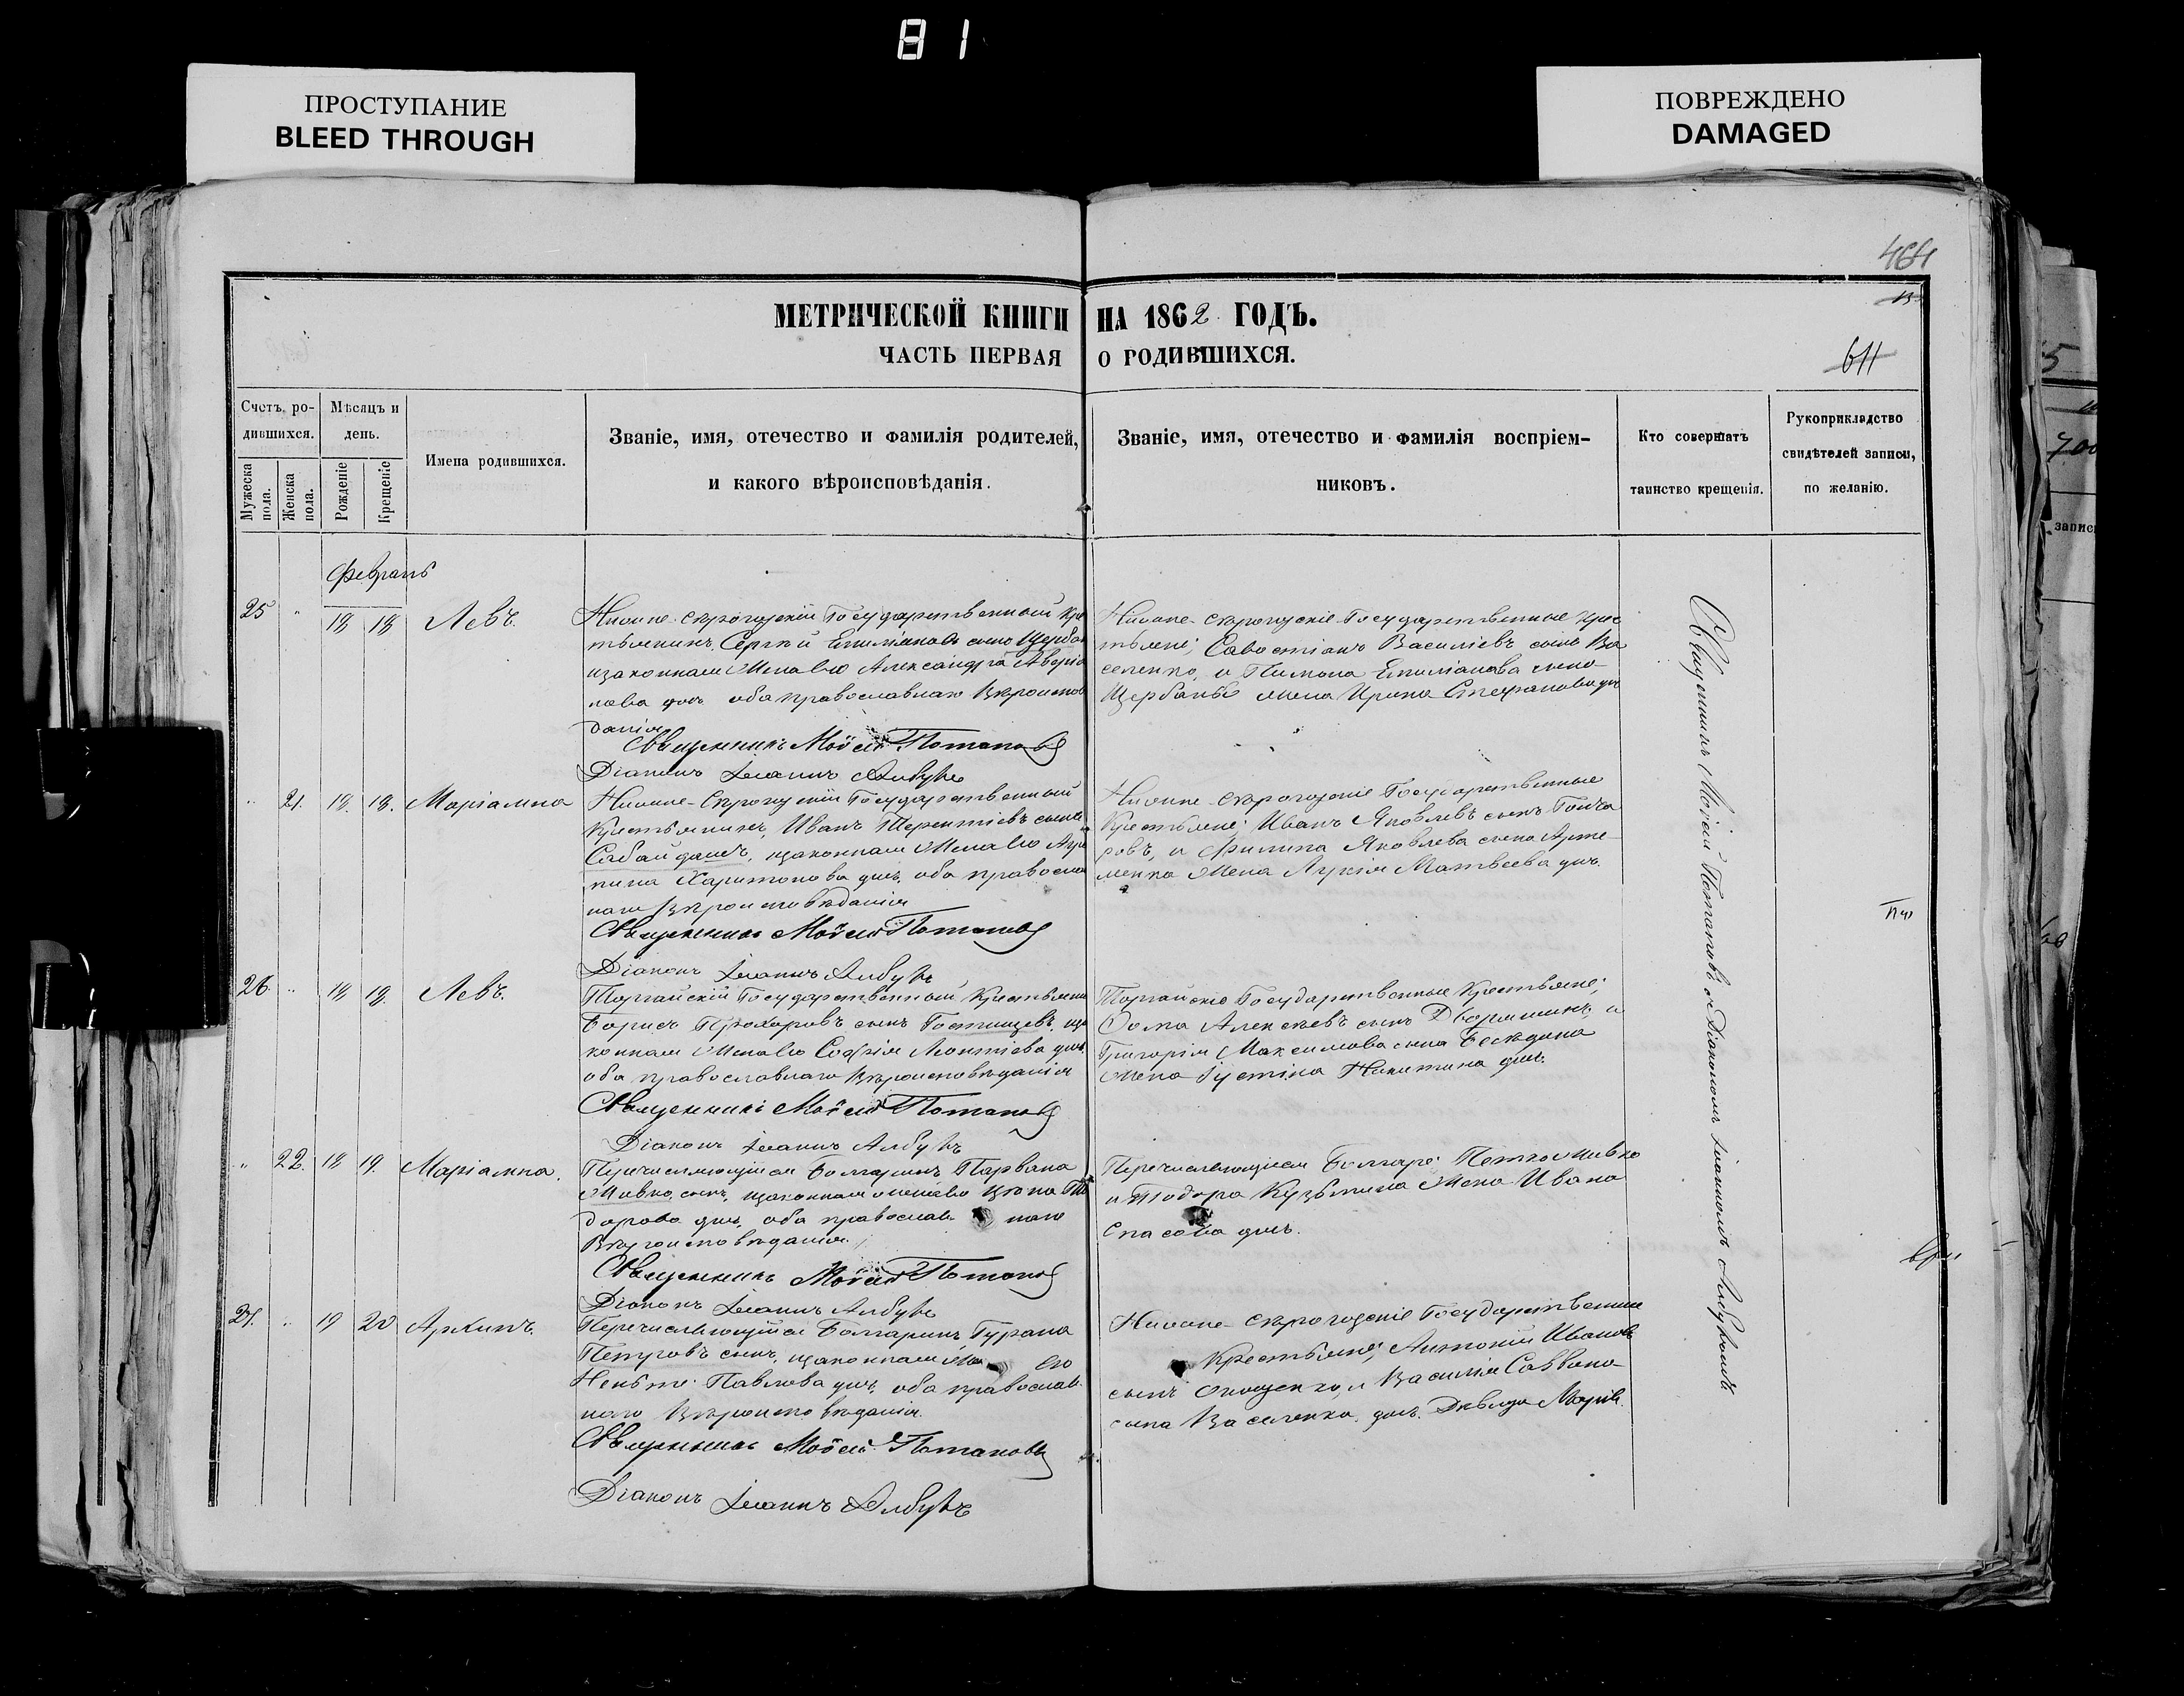 81
ПРОСТУПАНИЕ
BLEED THROUGH
ПОВРЕЖДЕНО
DAMAGED
МЕТРИЧЕСКОЙ КНИГИ НА 1862 ГОДЪ.
ЧАСТЬ ПЕРВАЯ О РОДИВШИХСЯ.
611
Счетъ ро-
дившихся.
Мужеска пола.
Женска пола.
Мѣсяцъ и
день.
Рожденіе
Крещеніе
Имена родившихся.
Званіе, имя, отечество и фамилія родителей,
и какого вѣроисповѣданія.
Званіе, имя, отечество и фамилія воспріем-
никовъ.
Кто совершатъ
таинство крещенія.
Рукоприкладство
свидѣтелей записи,
по желанію.
Февраль
25 " 18 18 Левъ.
Государственный Кре
стьянинъ, Сергѣй Емиліановъ сынъ Щербан
изаконная Жена его Александра Аверіа
нова дочь оба православнаго Вѣроиспов
данія
Священникъ Мойсей Потаповъ
Діаконъ Іоаннъ Албулъ
Государственные Крес
тьяне; Савостіанъ Василіевъ сынъ Ва
силенко, и Пимона Емиліанова сына
Щербаня жена Ирина Стефанова дчь
" 21. 18. 18. Маріамна
Государственный
Крестьянинъ, Иванъ Терентіевъ сынъ
изаконная Жена его Агри
пина Харитонова дчь. оба православ
наго Вѣроисповѣданія
Священникъ Мойсей Потаповъ
Діаконъ Іоаннъ Албулъ
Государственные
Крестьяне; Иванъ Яковлевъ сынъ Гонча
ровъ, и Филипа Яковлева сына Арте
менка Жена Лукія Матвѣева дчь.
26. " 18 18. Левъ.
Государственный Крестьянин
Борисъ Прохоровъ сынъ Гостищевъ, иза
конная Жена его Софія Леонтіева дчь.
оба православнаго Вѣроисповѣданія
Священникъ Мойсей Потаповъ
Діаконъ Іоаннъ Албулъ
Государственные Крестьяне;
Фома Алексѣевъ сынъ Дворянинъ, и
Григорія Максимова сына Бесѣдина
Жена Іустина Никитина дчь.
" 22. 18 19. Маріамна.
Перечисляющійся Болгаринъ Парвана
сынъ, изаконная жена его То
дорова дчь, оба православ наго
Вѣроисповѣданія.
Священникъ Мойсей Потаповъ
Діаконъ Іоаннъ Албулъ
Перечисляющіися Болгаре; Петко
и Тодора Кузьмина Жена Ивана
Спасова дчь.
27. " 19 20 Архипъ.
Перечисляющійся Болгаринъ
Петровъ сынъ, изаконная его
Павлова дчь, оба православ
наго Вѣроисповѣданія.
Священникъ Мойсей Потаповъ
Діаконъ Іоаннъ Албулъ
Государственные
Крестьяне; Антоній Ивановъ
сынъ и Василія Саввина
сына Василенка дчь. Дѣвица Марія.
Священникъ Мойсей Потаповъ съ Діакономъ Іоанномъ Албуломъ